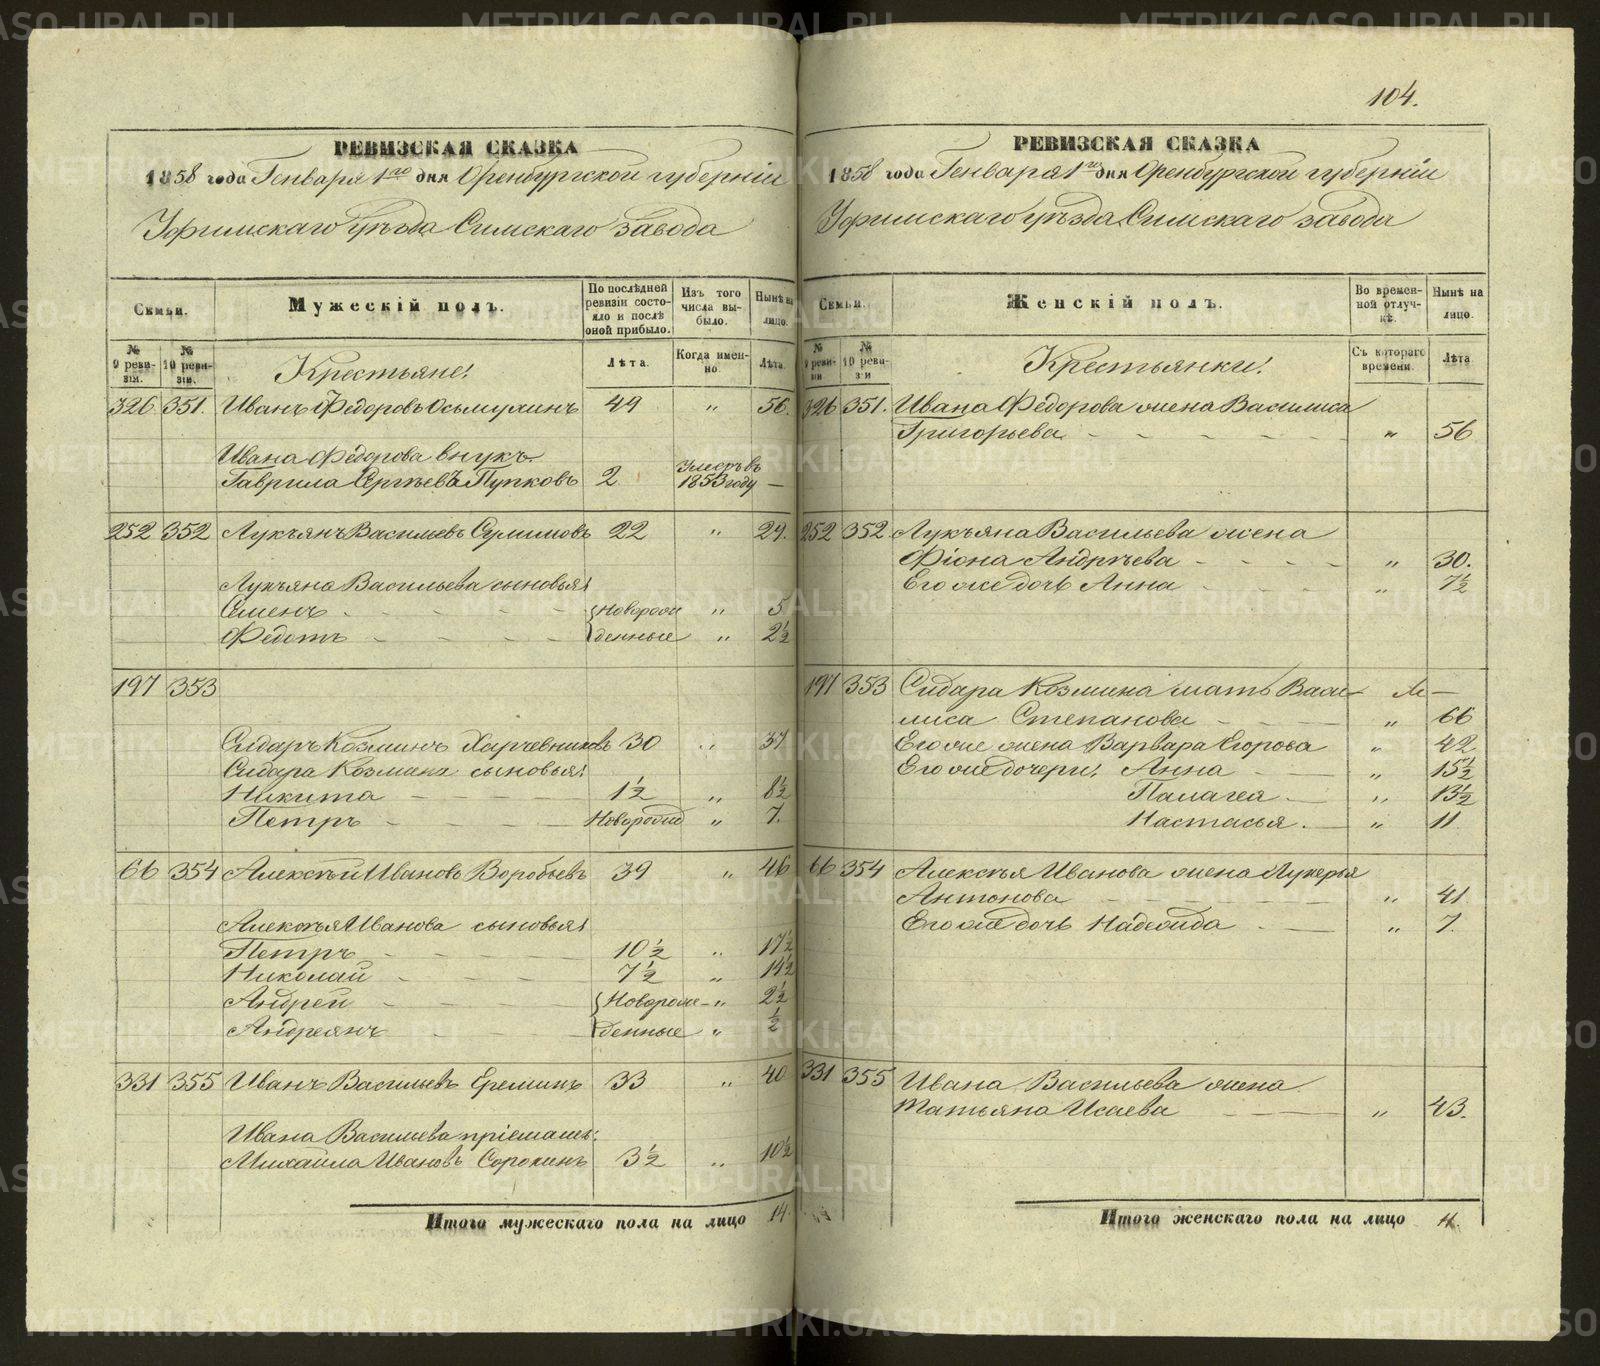 104.
РЕВИЗСКАЯ СКАЗКА
1858 года Генваря 1го дня Оренбургской губерніи
Уфимскаго уѣзда Симскаго завода
Семьи.
Мужескій полъ.
По послѣдней ревизіи состояло и послѣ оной прибыло.
Изъ того числа выбыло.
Нынѣ на лицо.
№ 9 ревизіи.
№ 10 ревизіи.
Крестьяне:
Лѣта.
Когда именно.
Лѣта.
326 351. Иванъ Ѳедоровъ Осьмухинъ 49 " 56.
Ивана Ѳедорова внукъ
Гаврила Сергѣевъ Пупковъ 2 Умеръ въ 1853 году —
252 352 Лукьянъ Васильевъ Сулимовъ 22 " 29.
Лукьяна Васильева сыновья:
Семенъ Новорож " 5
Ѳедотъ денные " 2½
197 353
Сидаръ Козминъ Харчевниковъ 30 " 37
Сидара Козмина сыновья:
Никита 1½ " 8½
Петръ Новорожд " 7.
66 354 Алексѣй Ивановъ Воробьевъ 39 " 46
Алексѣя Иванова сыновья:
Петръ 10½ " 17½
Николай 7½ " 14½
Андрей Новорож- " 2½
Андреянъ денные " ½
331 355 Иванъ Васильевъ Ереминъ 33 " 40
Ивана Васильева пріемышъ:
Михайла Ивановъ Сорокинъ 3½ " 10½
Итого мужескаго пола на лицо 14.
РЕВИЗСКАЯ СКАЗКА
1858 года Генваря 1го дня Оренбургской губерніи
Уфимскаго уѣзда Симскаго завода
Семьи.
Женскій полъ.
Во временной отлучкѣ.
Нынѣ на лицо.
№ 9 ревизіи
№ 10 ревизіи
Крестьянки:
Съ котораго времени.
Лѣта.
326 351. Ивана Ѳедорова жена Василиса
Григорьева " 56
252 352 Лукьяна Васильева жена
Ѳіона Андрѣева " 30.
Его же дочь Анна " 7½
197 353 Сидара Козмина мать Васи-
лиса Степанова " 66
Его же жена Варвара Егорова " 42
Его же дочери: Анна " 15½
Палагея " 13½
Настасья " 11
66 354 Алексѣя Иванова жена Лукерья
Антонова " 41
Его же дочь Надежда " 7.
331 355 Ивана Васильева жена
Татьяна Исаева " 43.
Итого женскаго пола на лицо 11.
METRIKI.GASO-URAL.RU